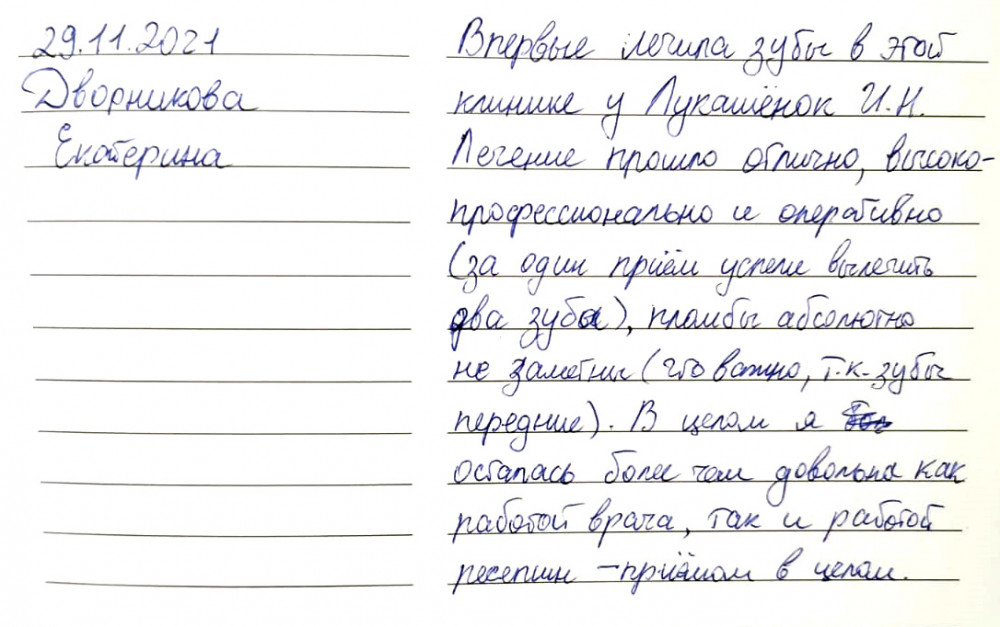 29.11.2021
Дворникова
Екатерина
Впервые лечила зубы в этой
клинике у Лукашёнок И.Н.
Лечение прошло отлично, высоко-
профессионально и оперативно
(за один приём успели вылечить
два зуба), пломбы абсолютно
не заметны (что важно, т.к. зубы
передние). В целом я
осталась более чем довольна как
работой врача, так и работой
ресепшн – приёмом в целом.